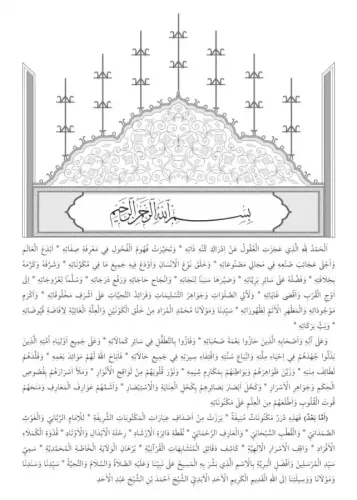 بسم الله الرحمن الرحيم
الْحَمْدُ لِلَّهِ الَّذِي عَجَزَتِ الْعُقُولُ عَنْ إِدْرَاكِ كُنْهِ ذَاتِهِ * وَتَحَيَّرَتْ فُهُومُ الْفُحُولِ فِي مَعْرِفَةِ صِفَاتِهِ * أَبْدَعَ الْعَالَمَ
وَأَجْلَى عَجَائِبَ صُنْعِهِ فِي مَجَالِي مَصْنُوعَاتِهِ * وَخَلَقَ نَوْعَ الْإِنْسَانِ وَأَوْدَعَ فِيهِ جَمِيعَ مَا فِي مُكَوَّنَاتِهِ * وَشَرَّفَهُ وَكَرَّمَهُ
بِخِلَافَتِهِ * وَفَضَّلَهُ عَلَى سَائِرِ بَرِيَّاتِهِ * وَصَيَّرَهَا سَبَبًا لِنَجَاتِهِ * وَإِنْجَاحِ حَاجَاتِهِ وَرَفْعِ دَرَجَاتِهِ * وَسُلَّمًا لِعُرُوجَاتِهِ * إِلَى
أَوْجِ الْقُرْبِ وَأَقْصَى غَايَاتِهِ * وَلَآلِي الصَّلَوَاتِ وَجَوَاهِرُ التَّسْلِيمَاتِ وَفَرَائِدُ التَّحِيَّاتِ عَلَى أَشْرَفِ مَخْلُوقَاتِهِ * وَأَكْرَمِ
مَوْجُودَاتِهِ وَالْمَظْهَرِ الْأَتَمِّ لِظُهُورَاتِهِ * سَيِّدِنَا وَمَوْلَانَا مُحَمَّدٍ الْمُرَادِ مِنْ خَلْقِ الْكَوْنَيْنِ وَالْعِلَّةِ الْغَائِيَّةِ لِإِفَاضَةِ فُيُوضَاتِهِ
وَبَثِّ بَرَكَاتِهِ *
وَعَلَى آلِهِ وَأَصْحَابِهِ الَّذِينَ حَازُوا بِنِعْمَةِ صُحْبَاتِهِ * وَفَازُوا بِالتَّطَفُّلِ فِي سَائِرِ كَمَالَاتِهِ * وَعَلَى جَمِيعِ أَوْلِيَاءِ أُمَّتِهِ الَّذِينَ
بَذَلُوا جُهْدَهُمْ فِي إِحْيَاءِ مِلَّتِهِ وَاتِّبَاعِ سُنَّتِهِ * وَاقْتِفَاءِ سِيرَتِهِ فِي جَمِيعِ حَالَاتِهِ * فَأَتَاحَ اللهُ لَهُمْ مَوَائِدَ نِعَمِهِ * وَقَلَّدَهُمْ
لَطَائِفَ مِنَنِهِ * وَزَيَّنَ ظَوَاهِرَهُمْ وَبَوَاطِنَهُمْ بِمَكَارِمِ شِيَمِهِ * وَنَوَّرَ قُلُوبَهُمْ مِنْ لَوَاقِحِ الْأَنْوَارِ * وَمَلَأَ أَسْرَارَهُمْ بِفُصُوصِ
الْحِكَمِ وَجَوَاهِرِ الْأَسْرَارِ * وَكَحَلَ أَبْصَارَ بَصَائِرِهِمْ بِكُحْلِ الْعِنَايَةِ وَالِاسْتِبْصَارِ * وَأَشَمَّهُمْ عَوَارِفَ الْمَعَارِفِ وَمَنَحَهُمْ
قُوتَ الْقُلُوبِ وَأَطْلَعَهُمْ مِنَ الْعِلْمِ عَلَى مَكْنُونَاتِهِ
(أَمَّا بَعْدُ) فَهَذِهِ دُرَرُ مَكْنُونَاتٍ مُنِيفَةٌ * بَرَزَتْ مِنْ أَصْدَافِ عِبَارَاتِ الْمَكْتُوبَاتِ الشَّرِيفَةِ * لِلْإِمَامِ الرَّبَّانِيِّ وَالْغَوْثِ
الصَّمْدَانِيِّ * وَالْقُطْبِ السُّبْحَانِيِّ * وَالْعَارِفِ الرَّحْمَانِيِّ * نُقْطَةِ دَائِرَةِ الْإِرْشَادِ * رِحْلَةِ الْأَبْدَالِ وَالْأَوْتَادِ * قُدْوَةِ الْكُمَلَاءِ
الْأَفْرَادِ * وَاقِفِ الْأَسْرَارِ الْإِلَهِيَّةِ * كَاشِفِ دَقَائِقِ الْمُتَشَابِهَاتِ الْقُرْآنِيَّةِ * بُرْهَانِ الْوِلَايَةِ الْخَاصَّةِ الْمُحَمَّدِيَّةِ * سَمِيِّ
سَيِّدِ الْمُرْسَلِينَ وَأَفْضَلِ الْبَرِيَّةِ بِالِاسْمِ الَّذِي بَشَّرَ بِهِ الْمَسِيحُ عَلَى نَبِيِّنَا وَعَلَيْهِ الصَّلَاةُ وَالسَّلَامُ وَالتَّحِيَّةُ * سَيِّدِنَا وَسَنَدِنَا
وَمَوْلَانَا وَوَسِيلَتِنَا إِلَى اللهِ الْقَدِيمِ الْكَرِيمِ الْأَحَدِ الْأَبَدِيِّ الشَّيْخِ أَحْمَدَ بْنِ الشَّيْخِ عَبْدِ الْأَحَدِ